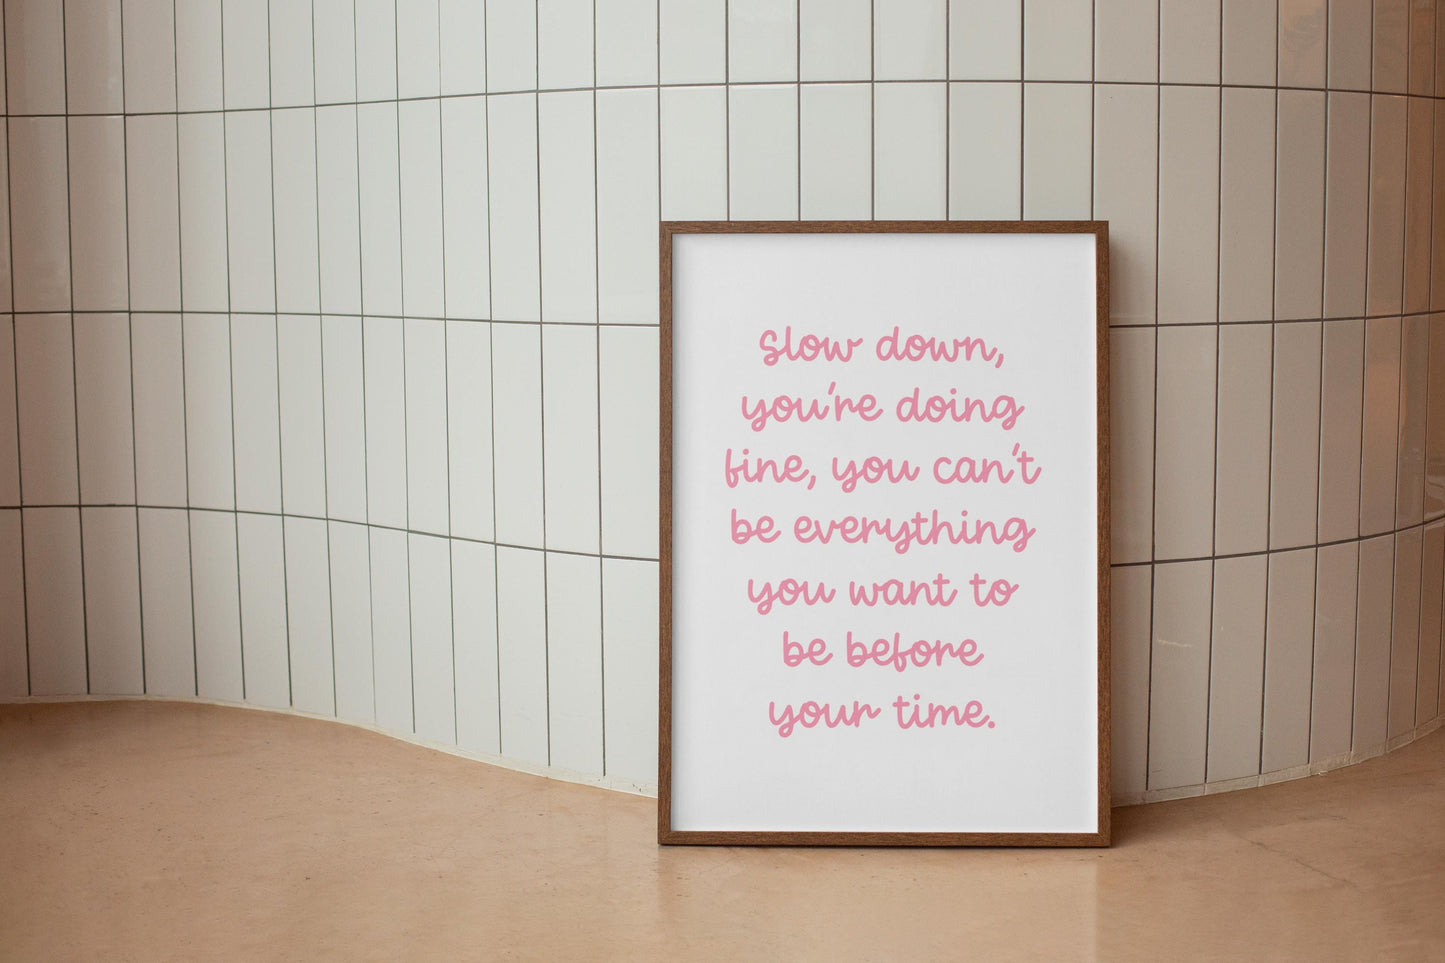 Slow down,
you're doing
fine, you can't
be everything
you want to
be before
your time.